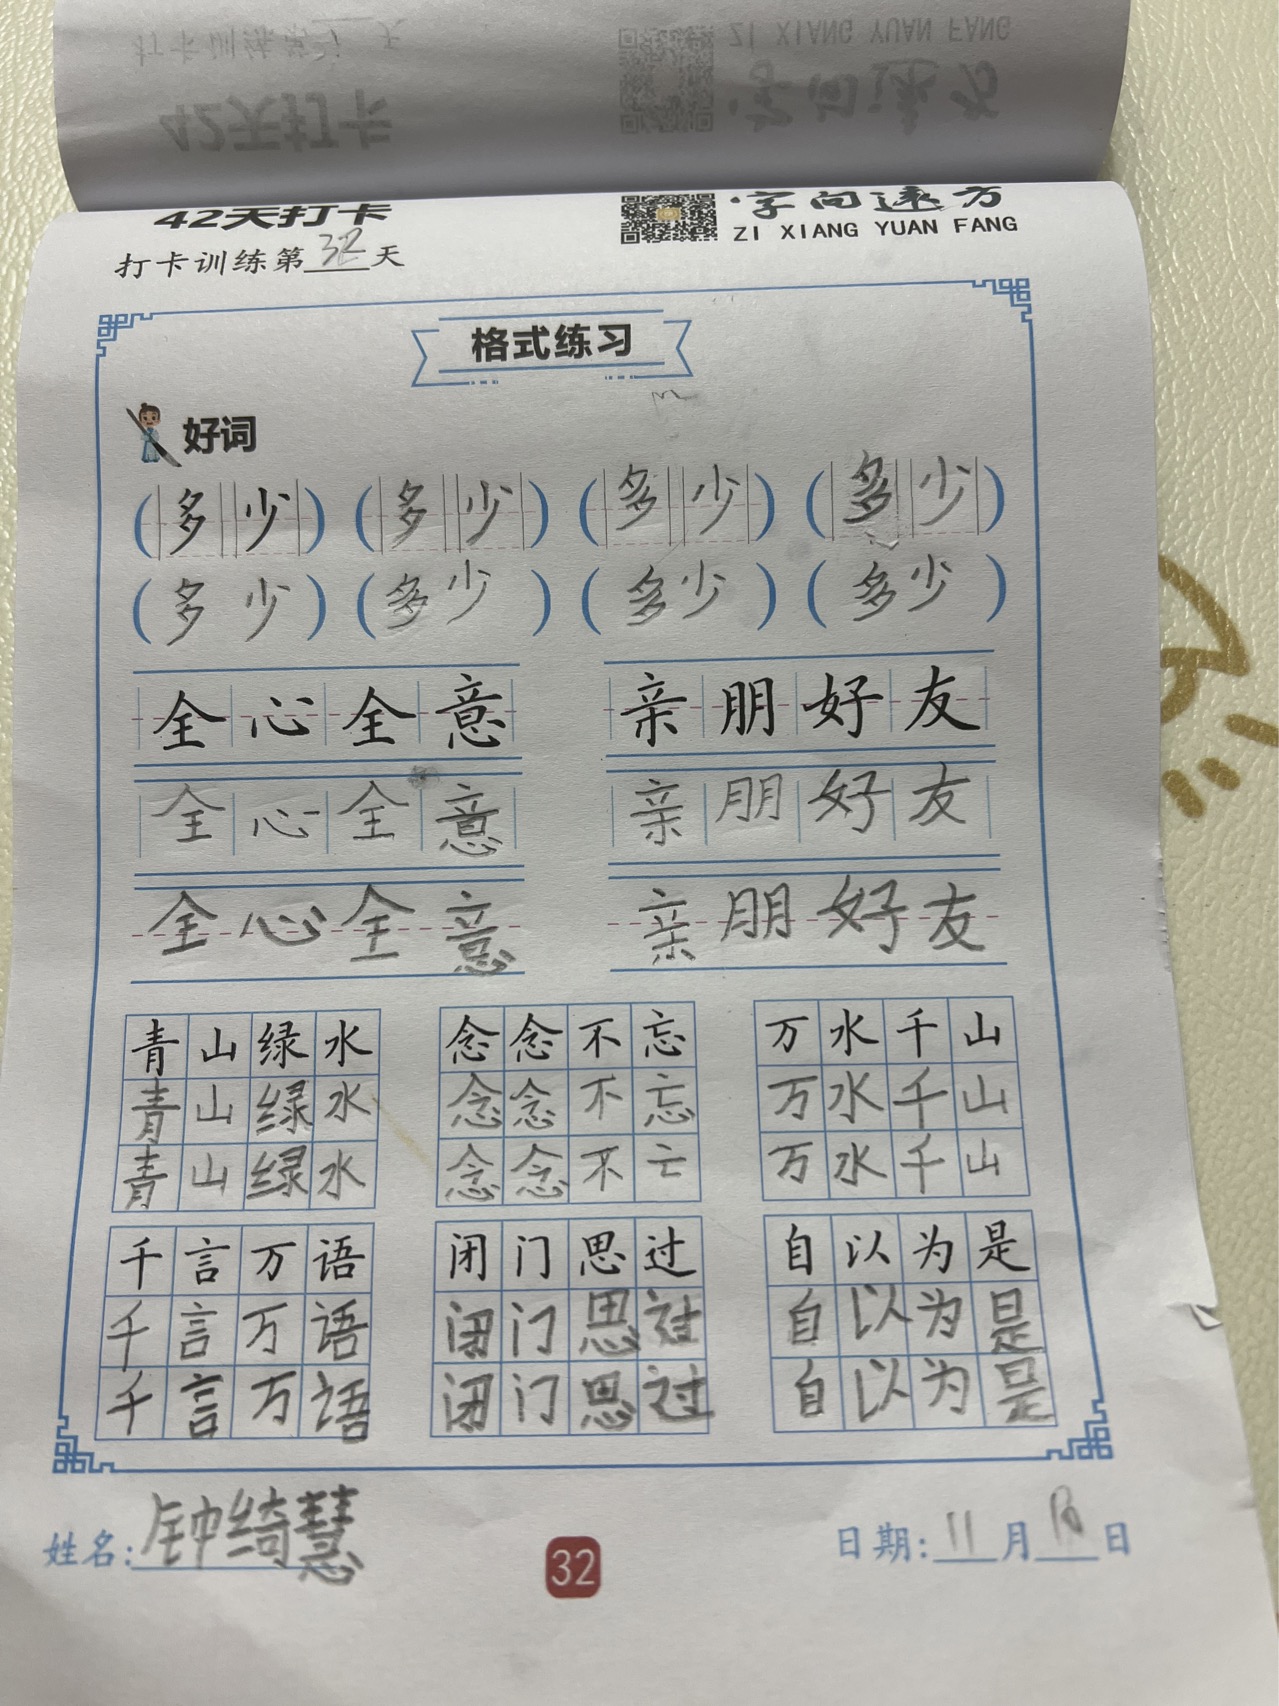 42天打卡
字向远方
ZI XIANG YUAN FANG
打卡训练第32天
格式练习
好词
(多少) (多少) (多少) (多少)
(多少) (多少) (多少) (多少)
全心全意 亲朋好友
全心全意 亲朋好友
全心全意 亲朋好友
青山绿水 念念不忘 万水千山
青山绿水 念念不忘 万水千山
青山绿水 念念不亡 万水千山
千言万语 闭门思过 自以为是
千言万语 闭门思过 自以为是
千言万语 闭门思过 自以为是
姓名:钟绮慧
32
日期:11月 日